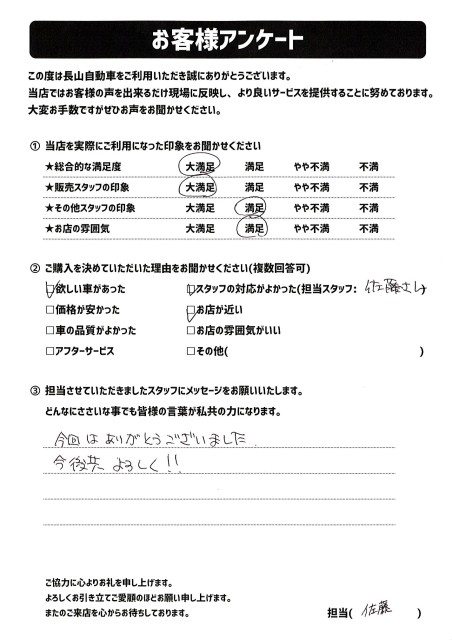 お客様アンケート
この度は長山自動車をご利用いただき誠にありがとうございます。
当店ではお客様の声を出来るだけ現場に反映し、より良いサービスを提供することに努めております。
大変お手数ですがぜひお声をお聞かせください。
① 当店を実際にご利用になった印象をお聞かせください
★総合的な満足度 大満足 満足 やや不満 不満
★販売スタッフの印象 大満足 満足 やや不満 不満
★その他スタッフの印象 大満足 満足 やや不満 不満
★お店の雰囲気 大満足 満足 やや不満 不満
② ご購入を決めていただいた理由をお聞かせください(複数回答可)
☑欲しい車があった ☑スタッフの対応がよかった(担当スタッフ: 佐藤さん)
□価格が安かった ☑お店が近い
□車の品質がよかった □お店の雰囲気がいい
□アフターサービス □その他( )
③ 担当させていただきましたスタッフにメッセージをお願いいたします。
どんなにささいな事でも皆様の言葉が私共の力になります。
今回はありがとうございました。
今後共よろしく!!
ご協力に心よりお礼を申し上げます。
よろしくお引き立てご愛顧のほどお願い申し上げます。
またのご来店を心からお待ちしております。
担当( 佐藤 )